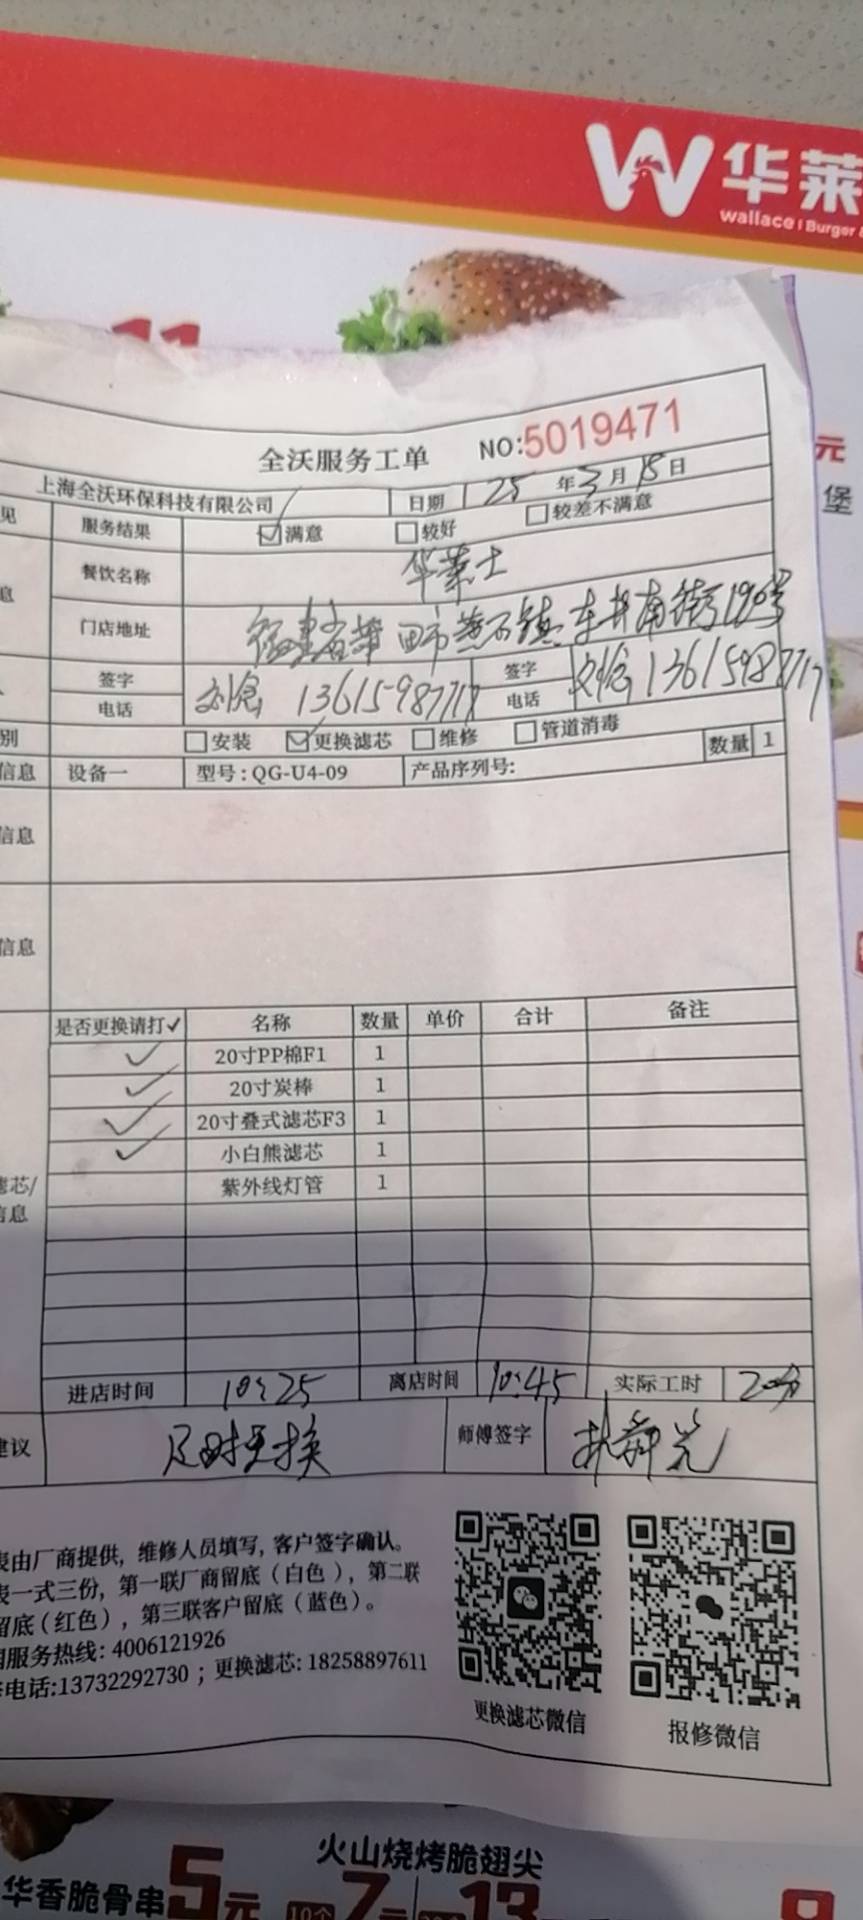 W 华莱
wallace | Burger &
11
元
堡
全沃服务工单 NO:5019471
上海全沃环保科技有限公司 日期 25 年 3 月 18 日
见 服务结果 ☑满意 □较好 □较差不满意
息 餐饮名称 华莱士
门店地址 福建省莆田市黄石镇 东井南街190号
签字 电话 13615987717 签字 电话 13615987717
别 □安装 ☑更换滤芯 □维修 □管道消毒
信息 设备一 型号:QG-U4-09 产品序列号: 数量 1
信息
信息
是否更换请打✓ 名称 数量 单价 合计 备注
✓ 20寸PP棉F1 1
✓ 20寸炭棒 1
✓ 20寸叠式滤芯F3 1
✓ 小白熊滤芯 1
紫外线灯管 1
滤芯/
信息
进店时间 10:25 离店时间 10:45 实际工时 20分
建议 及时更换 师傅签字
表由厂商提供, 维修人员填写, 客户签字确认。
表一式三份, 第一联厂商留底(白色), 第二联
留底(红色), 第三联客户留底(蓝色)。
服务热线: 4006121926
电话:13732292730 ; 更换滤芯: 18258897611
更换滤芯微信
报修微信
火山烧烤脆翅尖
华香脆骨串 5元
10个 7元
13